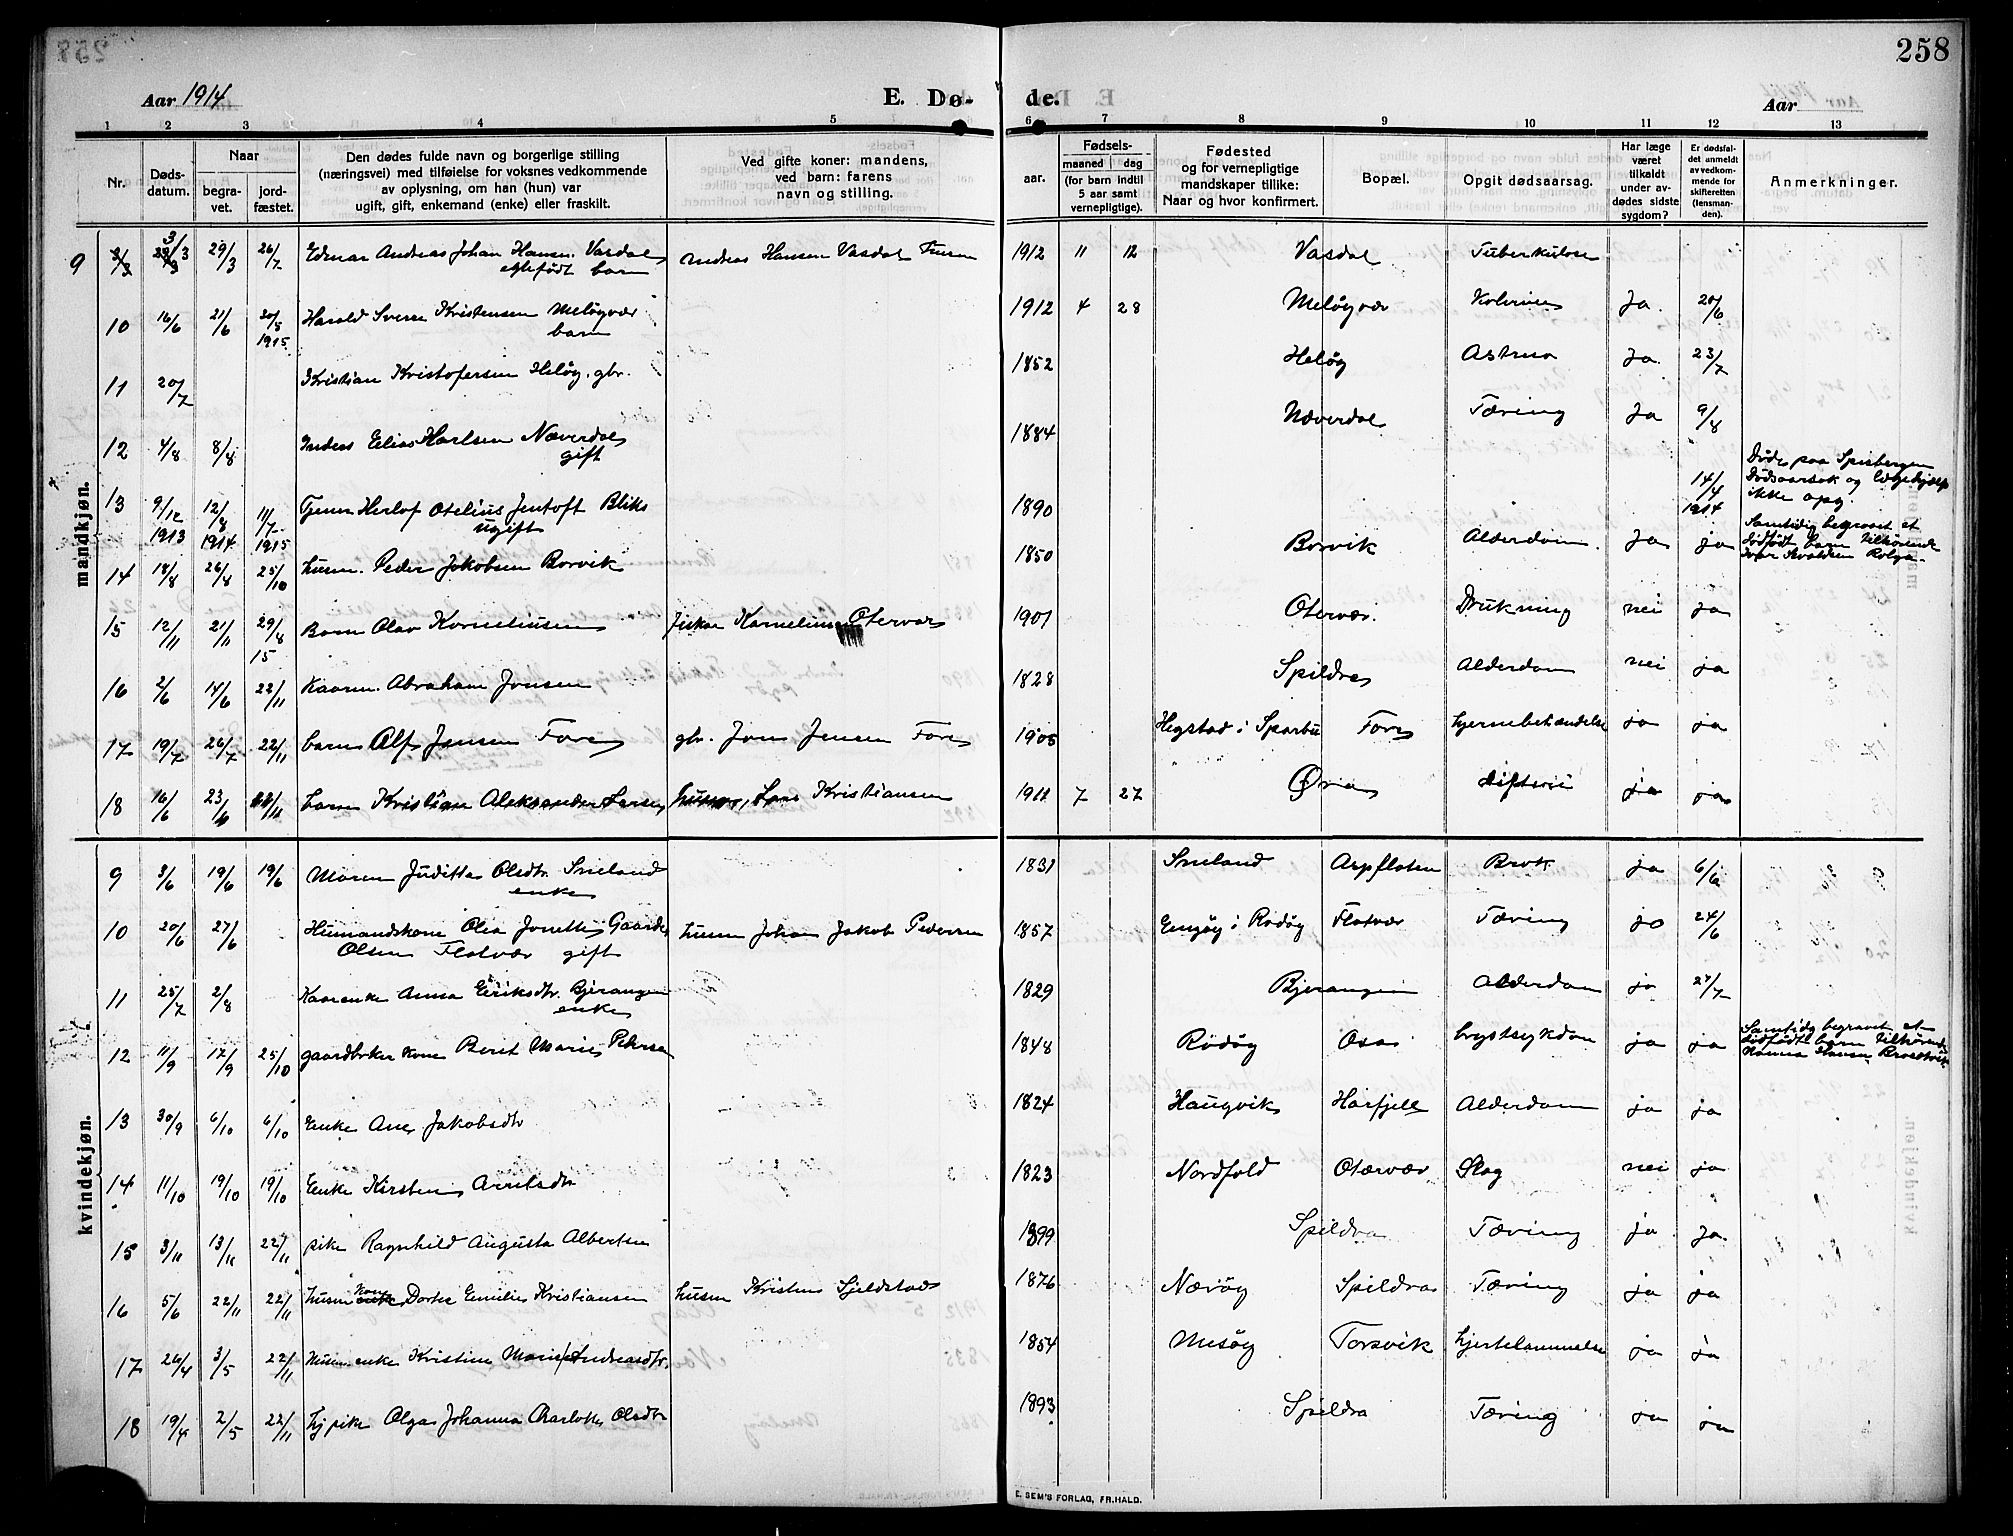 258
Aar 1914
E. Dø-
de.
Aar
1 2 3 4 5 6 7 8 9 10 11 12 13
Nr.
Døds-
datum.
Naar
begra-
vet.
jord-
fæstet.
Den dødes fulde navn og borgerlige stilling
(næringsvei) med tilføielse for voksnes vedkommende
av oplysning, om han (hun) var
ugift, gift, enkemand (enke) eller fraskilt.
Ved gifte koner: mandens,
ved barn: farens
navn og stilling.
Fødsels-
aar.
maaned
dag
(for barn indtil
5 aar samt
vernepligtige).
Fødested
og for vernepligtige
mandskaper tillike:
Naar og hvor konfirmert.
Bopæl.
Opgit dødsaarsag.
Har læge
været
tilkaldt
under av-
dødes sidste
sygdom?
Er dødsfal-
det anmeldt
av vedkom-
mende for
skifteretten
(lensman-
den).
Anmerkninger.
mandkjøn.
9 29/3 26/7 Andreas Johan Hansen Vasdal
egtefødt barn
Andreas Hansen Vasdal
1912 11 12 Vasdal Tuberkulose
10 16/6 21/6 20/5 1915 Harald Sverre Kristensen Meløyvær
barn
1912 4 28 Meløyvær Ja. 20/6
11 20/7 Kristian Kristofersen Heløy, gbr.
1852 Heløy Astma Ja. 23/7
12 4/8 8/8 Elias Karlsen Næverdal
gift
1884 Næverdal Tæring Ja 9/8
13 9/12 1913 12/8 1914 11/7 1915 Tjener Herlof Otelius Jentoft Bliks
ugift
1890 14/4 1914
Døde paa Spisbergen
Dødsaarsak og lægehjælp
ikke opg.
14 18/8 26/8 25/10 husm. Peder Jakobsen Borvik
1850 Borvik Alderdom. Ja ja
Samtidig begravet et
dødfødt barn tilhørende
15 12/11 21/11 29/8 15 Barn Olav Korneliusen
Fisker Kornelius Otervær
1901 Otervær. Drukning nei ja
16 2/6 14/6 22/11 Kaarm. Abraham Jonsen
1828 Spildra Alderdom nei ja
17 19/7 26/7 22/11 barn Alf Jensen Fore
gbr. Jens Jensen Fore
1905 Hegstad i Sparbu Fore hjernebetændelse ja ja
18 16/6 23/6 22/11 barn Kristian Aleksander Larsen
husm, Lars Kristiansen
1911 7 27 Ørnes difteri ja ja
kvindekjøn.
9 3/6 19/6 19/6 Maren Juditte Olsdtr. Smeland
enke
1831 Smeland Arpfloten Brok ja 6/6
10 20/6 27/6 Husmandskone Olia Jonette Gaarder
Olsen Flatvær gift
husm Johan Jakob Pedersen
1857 i Rødøy Flatvær Tæring ja 24/6
11 25/7 2/8 Kaarenke Anna Eriksdtr. Bjerangen
enke
1829 Bjerangen Alderdom ja 27/7
12 11/9 17/9 25/10 gaardbruker kone Beret Marie Petersen
1848 Rødøy Osa brystsykdom ja ja
Samtidig begravet et
dødfødt barn tilhørende
13 30/9 6/10 6/10 Enke Ane Jakobsdtr
1824 Haugvik Harfjell Alderdom ja ja
14 11/10 19/10 19/10 Enke Kirsten Arntsdtr
1823 Nordfold Otervær Slag nei ja
15 3/11 13/11 22/11 pike Ragnhild Augusta Albertsen
1899 Spildra Tæring ja Ja
16 5/6 22/11 22/11 husm kone Dorte Emilie Kristiansen
husm Kristen Sjeldstad
1876 Nærøy Spildra Tæring ja ja
17 26/4 3/5 22/11 husm enke Kristine Marie Andreasdtr.
1854 Mesøy Torsvik hjertelammelse ja ja
18 19/4 2/5 22/11 hj pike Olga Johanna Charlotte Olsdtr
1893 Spildra Tæring ja ja
E. SEM'S FORLAG, FR.HALD.